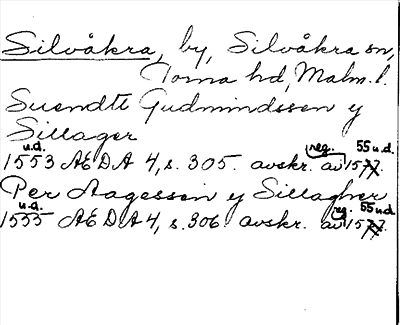 Silvåkra, by, Silvåkra sn,
Torna hd, Malm. l.
Suendte Gudmindssen y
Sillager
u.d. reg. 55 u.d.
1553 AEDA 4, s. 305. avskr. av 1577.
Per Aagessen y Sillagher
u.d. reg. 55 u.d.
1555 AEDA 4, s. 306 avskr. av 1577.